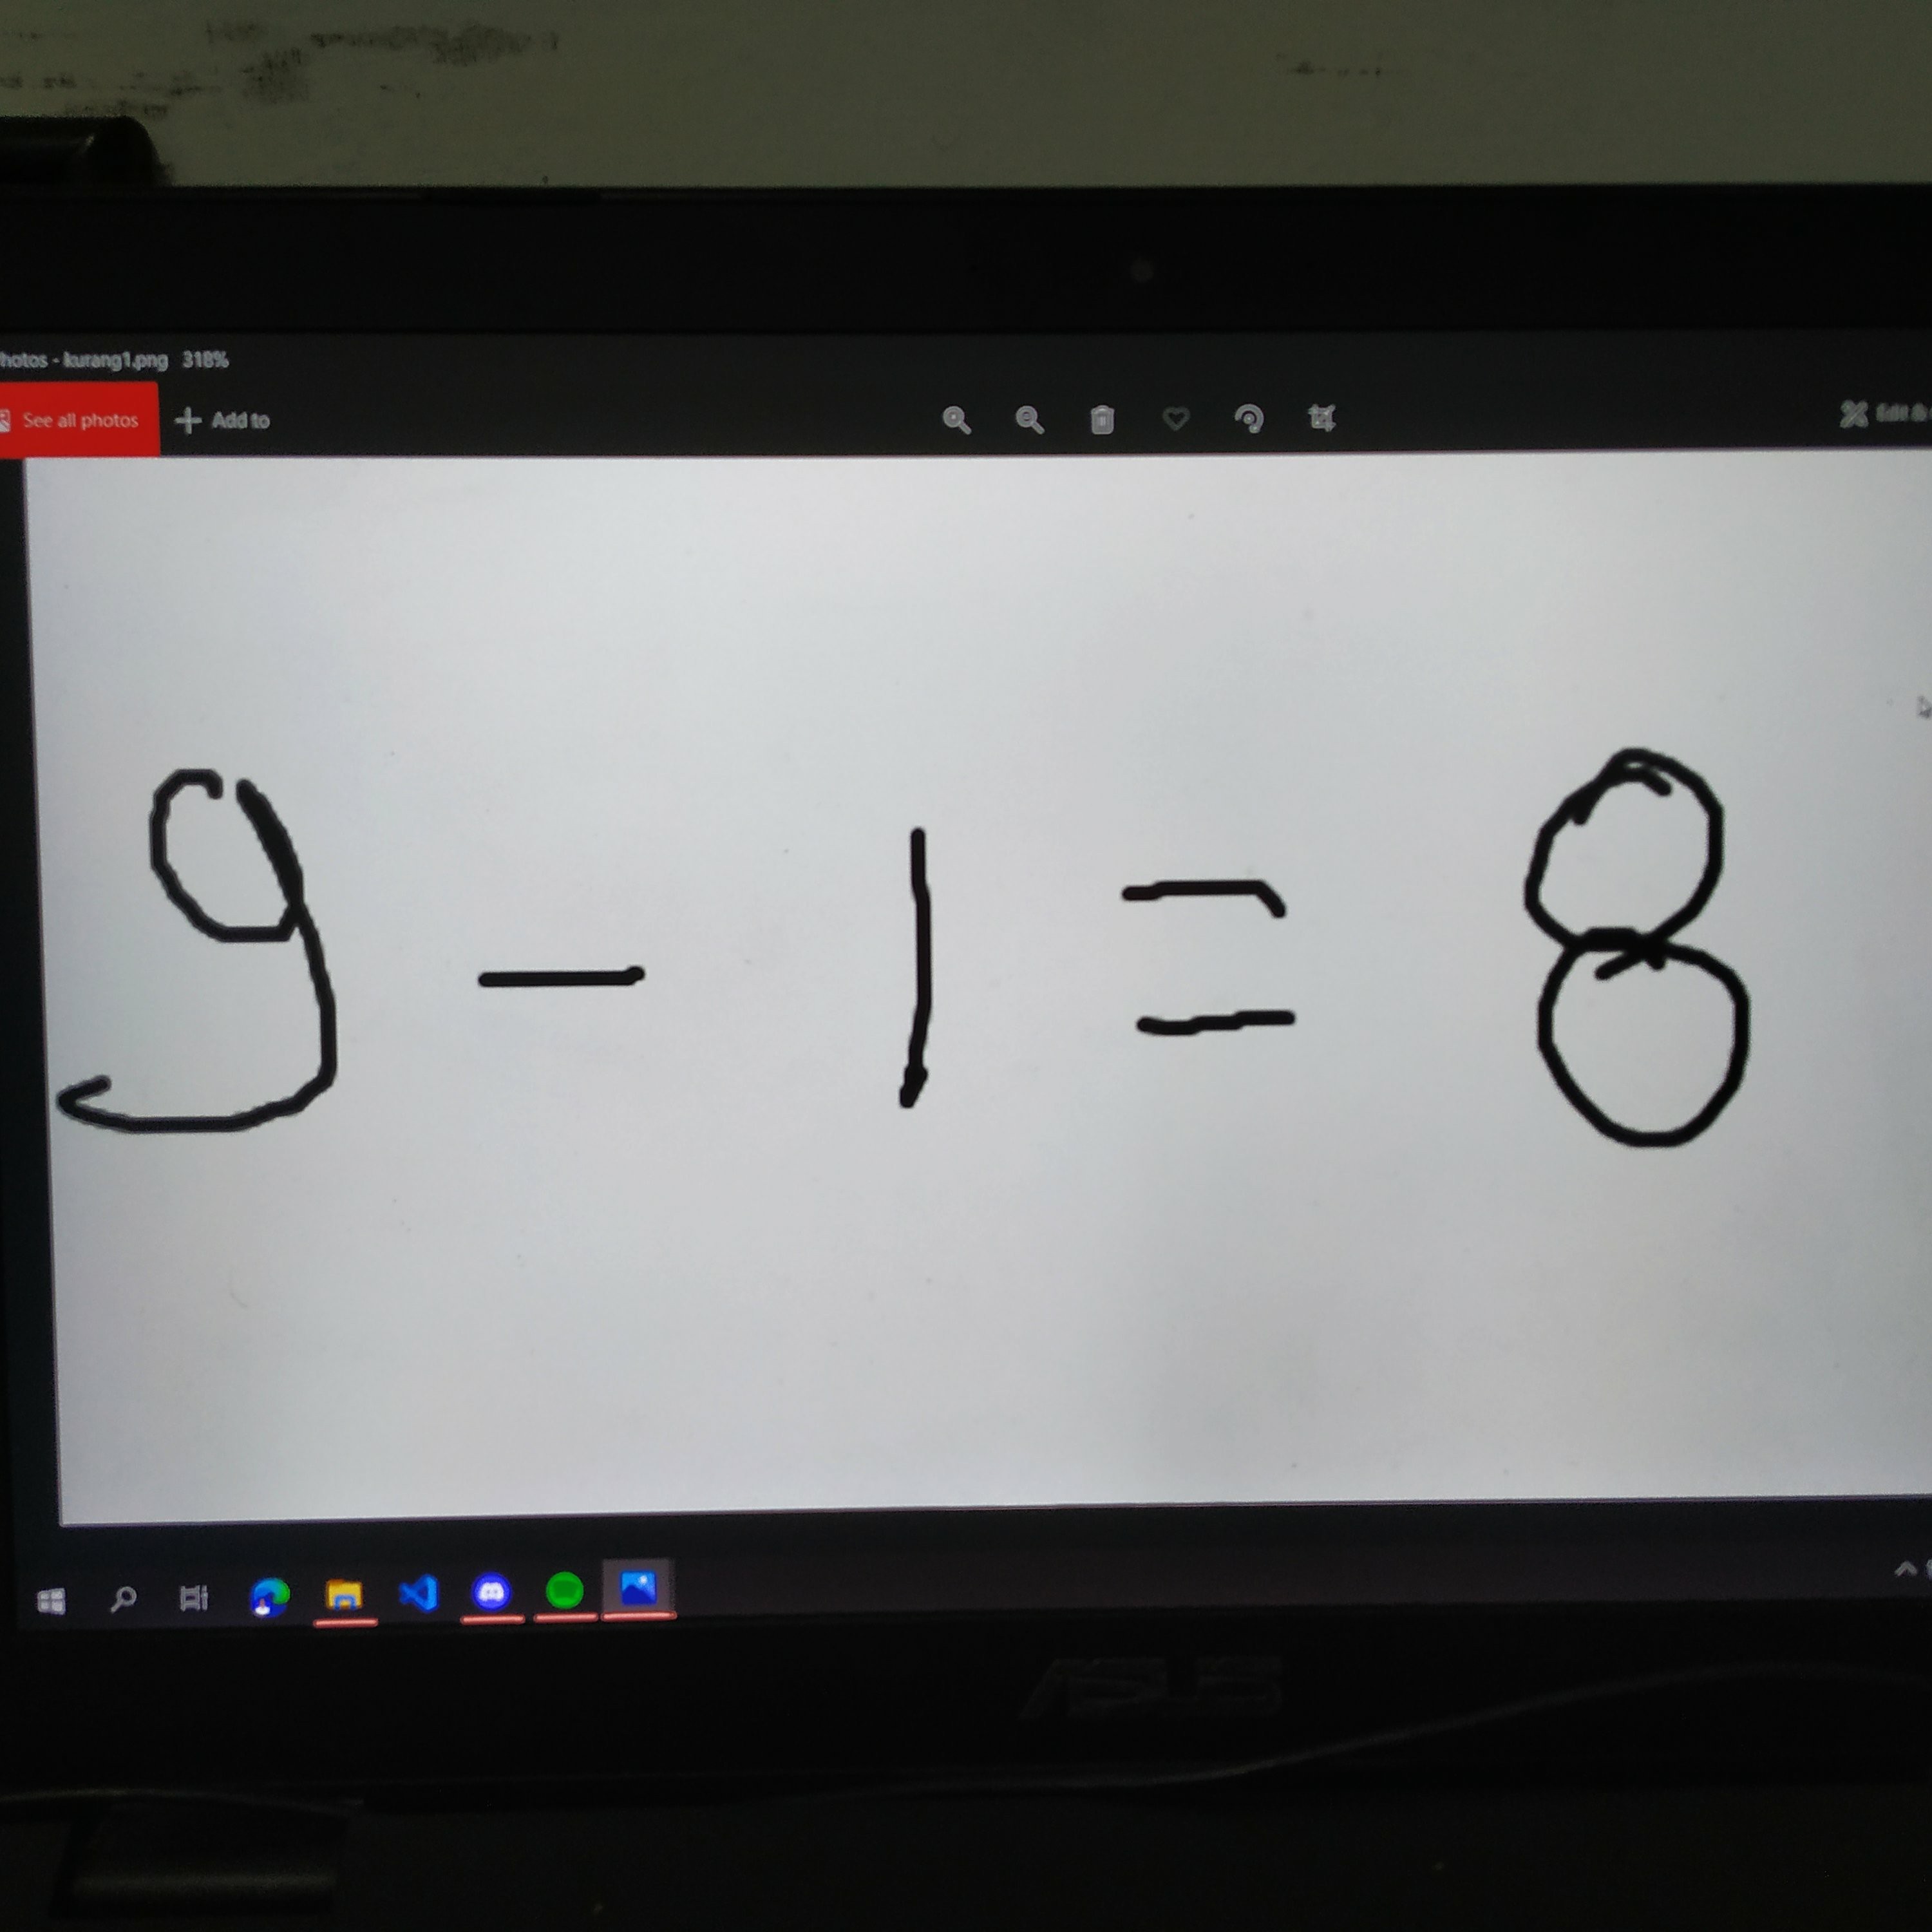 hotos - kurang1.png 318%
See all photos
Add to
9 - 1 = 8
ASUS